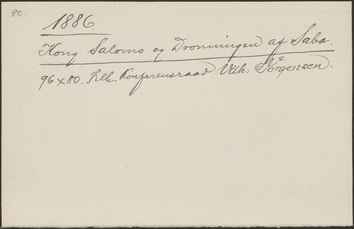 80.
1886.
Kong Salomo og Dronningen af Saba.
96 x 80. Konferensraad Vilh. Jörgensen.